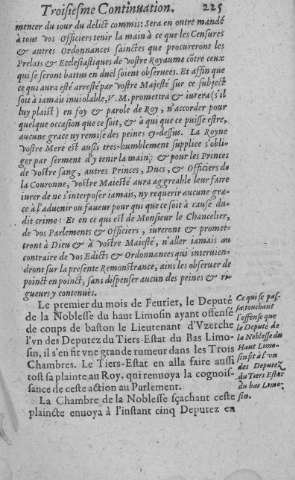 Troisiesme Continuation. 225
mencer du iour du delict commis: Sera en outre mandé
à tous vos Officiers tenir la main à ce que les Censures
& autres Ordonnances sainctes que procureront les
Prelats & Ecclesiastiques de vostre Royaume cõtre ceux
qui se seront battus en duel soient obseruees. Et affin que
ce qui aura esté arresté par vostre Majesté sur ce subject
soit à iamais inuiolable, V. M. promettra & iurera (s'il
luy plaist) en foy & parole de Roy, n'accorder pour
quelque occasion que ce soit, & à qui que ce puisse estre,
aucune grace ny remise des peines cy-dessus. La Royne
vostre Mere est aussi tres-humblement supplice s'obliger
par serment d'y tenir la main; & pour les Princes
de vostre sang, autres Princes, Ducs, & Officiers de
la Couronne, vostre Maiesté aura aggreable leur faire
iurer de ne interposer iamais, ny requerir aucune grace
à l'aduenir ou faueur pour qui que ce soit à cause dudit
crime: Et en ce qui est de Monsieur le Chancelier,
de vos Parlements & Officiers, iureront & promettront
à Dieu & à vostre Maiesté, n'aller iamais au
contraire de vos Edicts & Ordonnances qui interuiendront
sur la presente Remonstrance, ains les obseruer de
poinct en poinct, sans dispenser aucun des peines & rigueurs
y contenues.
Le premier du mois de Feurier, le Deputé
de la Noblesse du haut Limosin ayant offensé
de coups de baston le Lieutenant d'Vzerche
l'vn des Deputez du Tiers Estat du Bas Limosin,
il s'en fit vne grande rumeur dans les Trois
Chambres. Le Tiers-Estat en alla faire aussi
tost sa plainte au Roy, qui renuoya la cognoissance
de ceste action au Parlement.
La Chambre de la Noblesse sçachant ceste
plaincte enuoya à l'instant cinq Deputez en
Ce qui se passa
touchant
l'offense que
le Deputé de
la Noblesse du
Haut Limosin
fit à l'vn
des Deputez
du Tiers Estat
du bas Limosin.